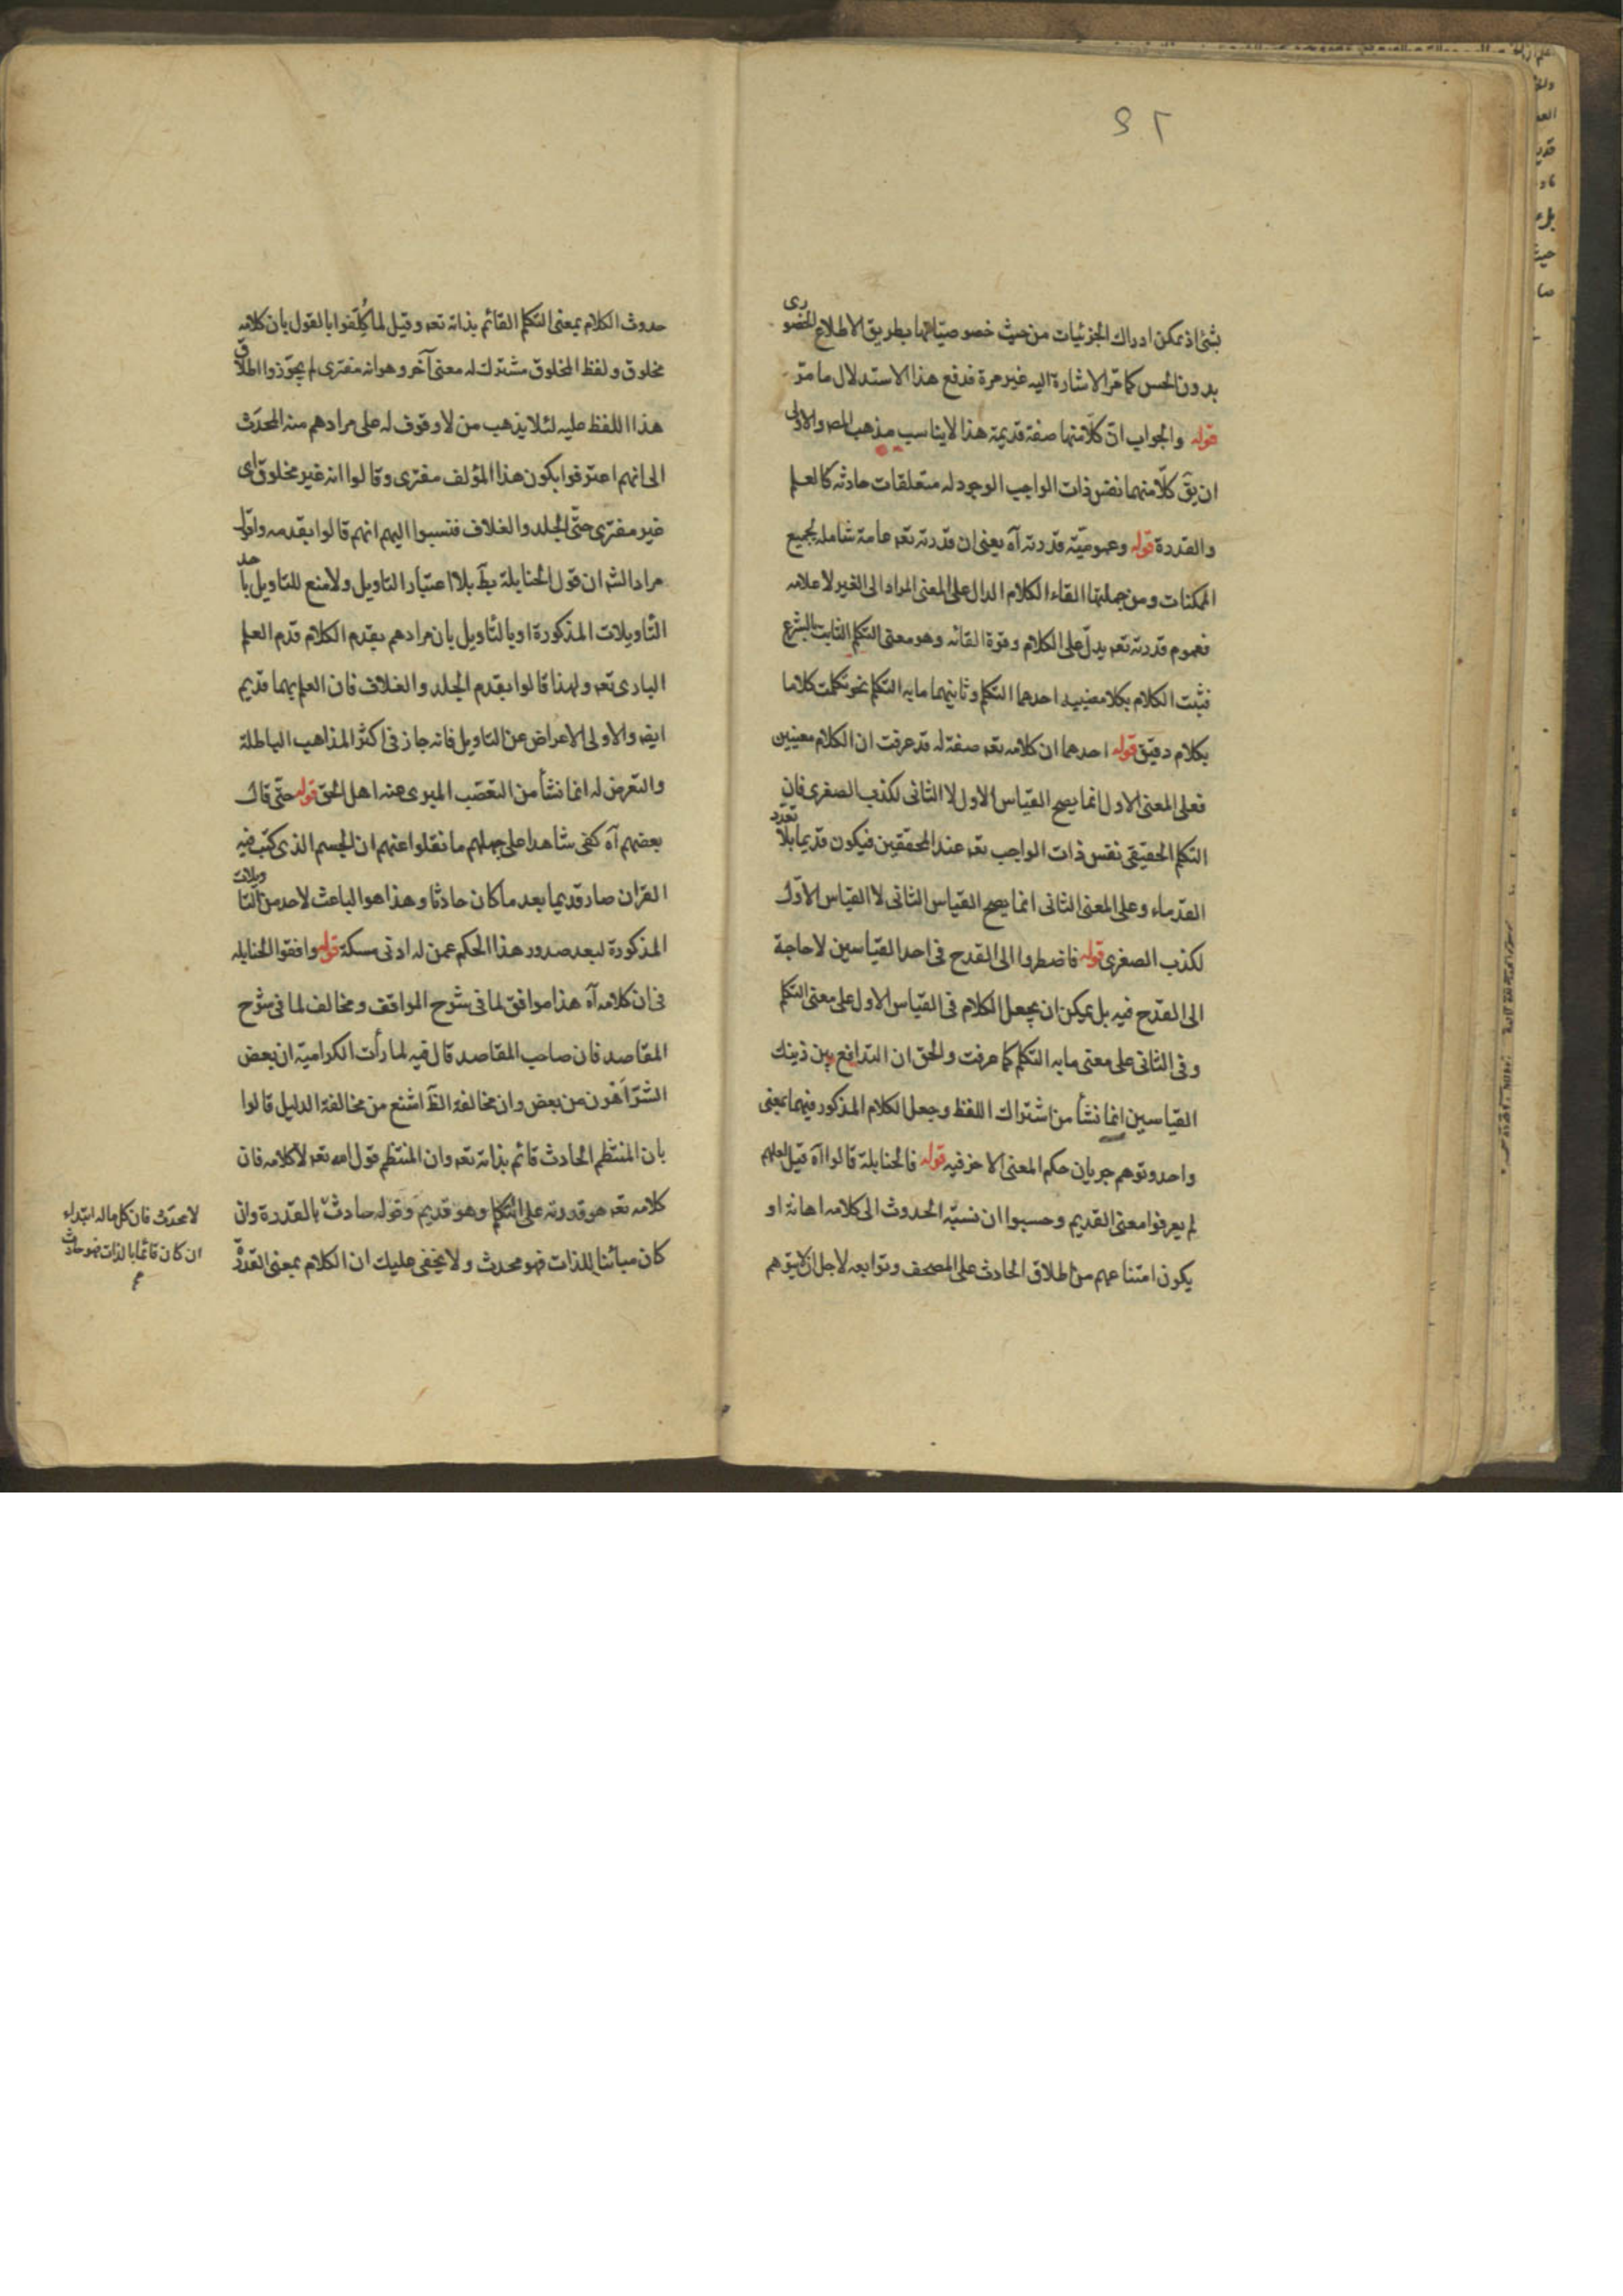 بشئ اذ يمكن ادراك الجزئيات من حيث خصوصياتها بطريق الاطلاع الحضورى
بدون الحس كما مر الاشارة اليه غير مرة فدفع هذا الاستدلال ما مر
قوله والجواب ان كلا منهما صفة قديمة هذا لا يناسب مذهب المص والاولى
ان يق كلا منهما نفس ذات الواجب الوجود له متعلقات حادثه كالعلم
والقدرة قوله وعموميّة قدرته آه يعنى ان قدرته تعه عامة شامله لجميع
الممكنات ومن جملتها القاء الكلام الدال على المعنى المراد الى الغير لاعلامه
فعموم قدرته تعه يدلّ على الكلام وقوة القائه وهو معنى التكلم الثابت بالشرع
فثبت الكلام بكلا معنييه احدهما التكلم وثانيهما ما به التكلم نحو تكلمت كلاما
بكلام دقيق قوله احدهما ان كلامه تعه صفة له قد عرفت ان الكلام معنيين
فعلى المعنى الاول انما يصح القياس الاول لا الثانى لكذب الصغرى فان
التكلم الحقيقى نفس ذات الواجب تعه عند المحققين فيكون قديما بلا تعدد
القدماء وعلى المعنى الثانى انما يصح القياس الثانى لا القياس الاوّل
لكذب الصغرى قوله فاضطروا الى القدح فى احد القياسين لا حاجة
الى القدح فيه بل يمكن ان يجعل الكلام فى القياس الاول على معنى التكلم
وفى الثانى على معنى ما به التكلم كما عرفت والحق ان التدافع بين ذينك
القياسين انما نشأ من اشتراك اللفظ وجعل الكلام المذكور فيهما بمعنى
واحد وتوهم جريان حكم المعنى الاخر فيه قوله فالحنابلة قالوا آه قيل لعلهم
لم يعرفوا معنى القديم وحسبوا ان نسبة الحدوث الى كلامه اهانة او
يكون امتناعهم من اطلاق الحادث على المصحف وتوابعه لاجل ان لا يتوهم
حدوث الكلام بمعنى التكلم القائم بذاته تعه وقيل لما كُلّفوا بالقول بان كلامه
مخلوق ولفظ المخلوق مشترك له معنى آخر وهو انه مفترى لم يجوّزوا اطلاق
هذا اللفظ عليه لئلا يذهب من لا وقوف له على مرادهم منه المحدَث
الى انهم اعترفوا بكون هذا المؤلف مفترى وقالوا انه غير مخلوق اى
غير مفترى حتّى الجلد والغلاف فنسبوا اليهم انهم قالوا بقدمه واقول
مراد الش ان قول الحنابلة بط بلا اعتبار التاويل ولا منع للتاويل باحد
التاويلات المذكورة او بالتاويل بان مرادهم بقدم الكلام قدم العلم
البارى تعه ولهذا قالوا بقدم الجلد والغلاف فان العلم بهما قديم
ايض والاولى الاعراض عن التاويل فانه جاز فى اكثر المذاهب الباطلة
والتعرض له انما نشأ من التعصّب المبرى عنه اهل الحق قوله حتّى قال
بعضهم آه كفى شاهدا على جهلهم ما نقلوا عنهم ان الجسم الذى كتب فيه
القرآن صار قديما بعد ما كان حادثا وهذا هو الباعث لاحد من التاويلات
المذكورة لبعد صدور هذا الحكم عمن له ادنى مسكة قوله وافقوا الحنابله
فى ان كلامه آه هذا موافق لما فى شرح المواقف ومخالف لما فى شرح
المقاصد فان صاحب المقاصد قال فيه لما رأت الكرامية ان بعض
الشرّ اهون من بعض وان مخالفة الظ اشنع من مخالفة الدليل قالوا
بان المنتظم الحادث قائم بذاته تعه وان المنتظم قول الله تعه لا كلامه فان
كلامه تعه هو قدرته على التكلم وهو قديم وقوله حادث بالقدرة وان
كان مبائنا للذات فهو محدث ولا يخفى عليك ان الكلام بمعنى القدرة
لا محدث فان كل ما له ابتداء
ان كان قائما بالذات فهو حادث